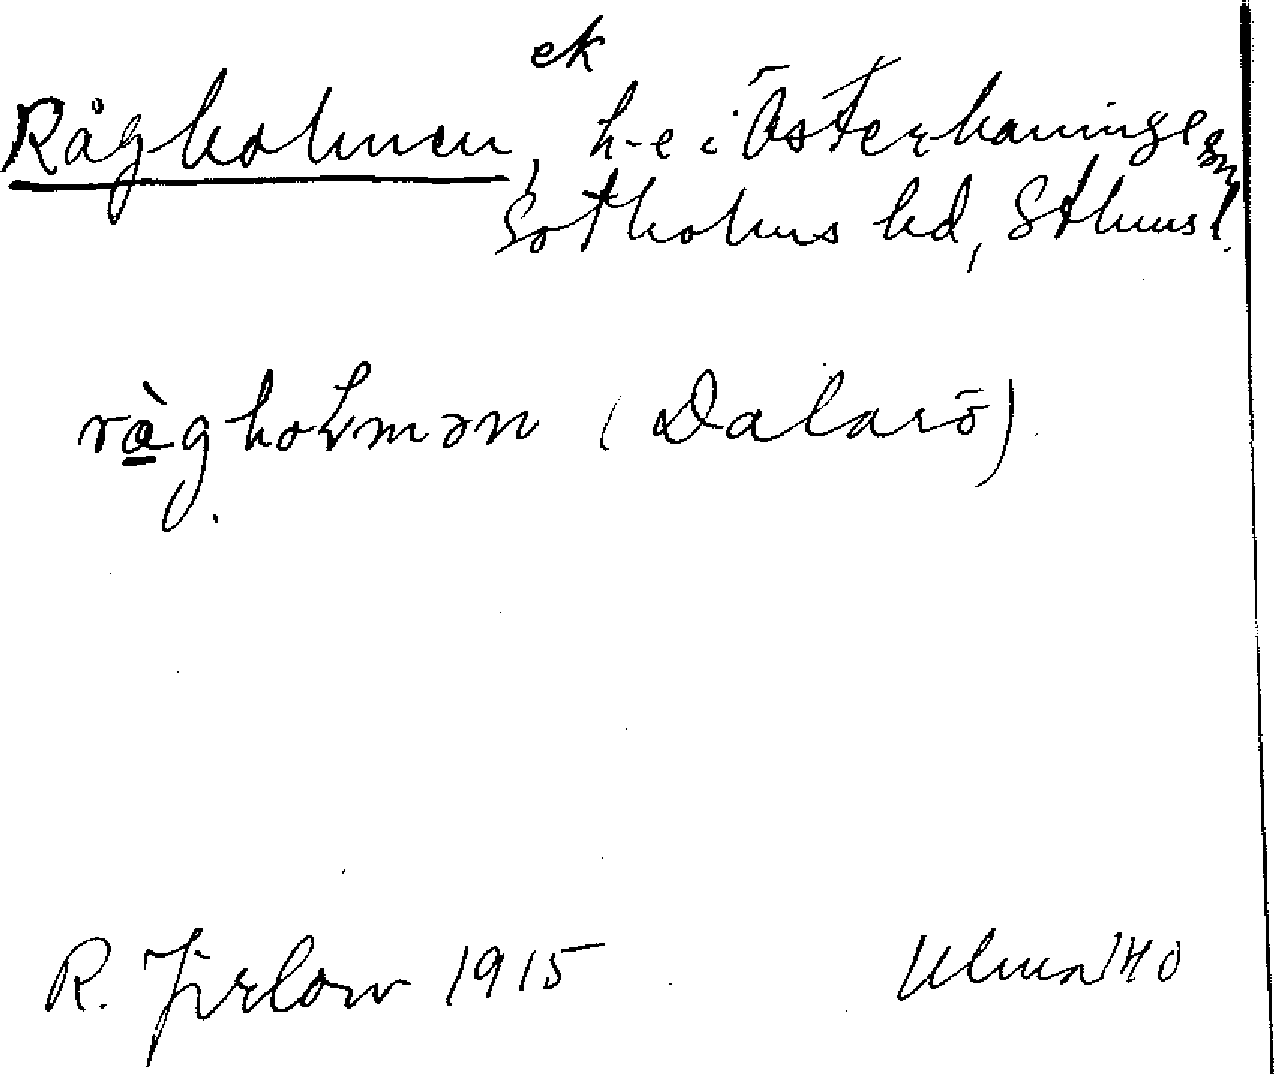 ek
Rågholmen, h-e i Österhaninge sn,
Sotholms hd, Sthms l.
ràgholmən (Dalarö).
R. Jirlow 1915